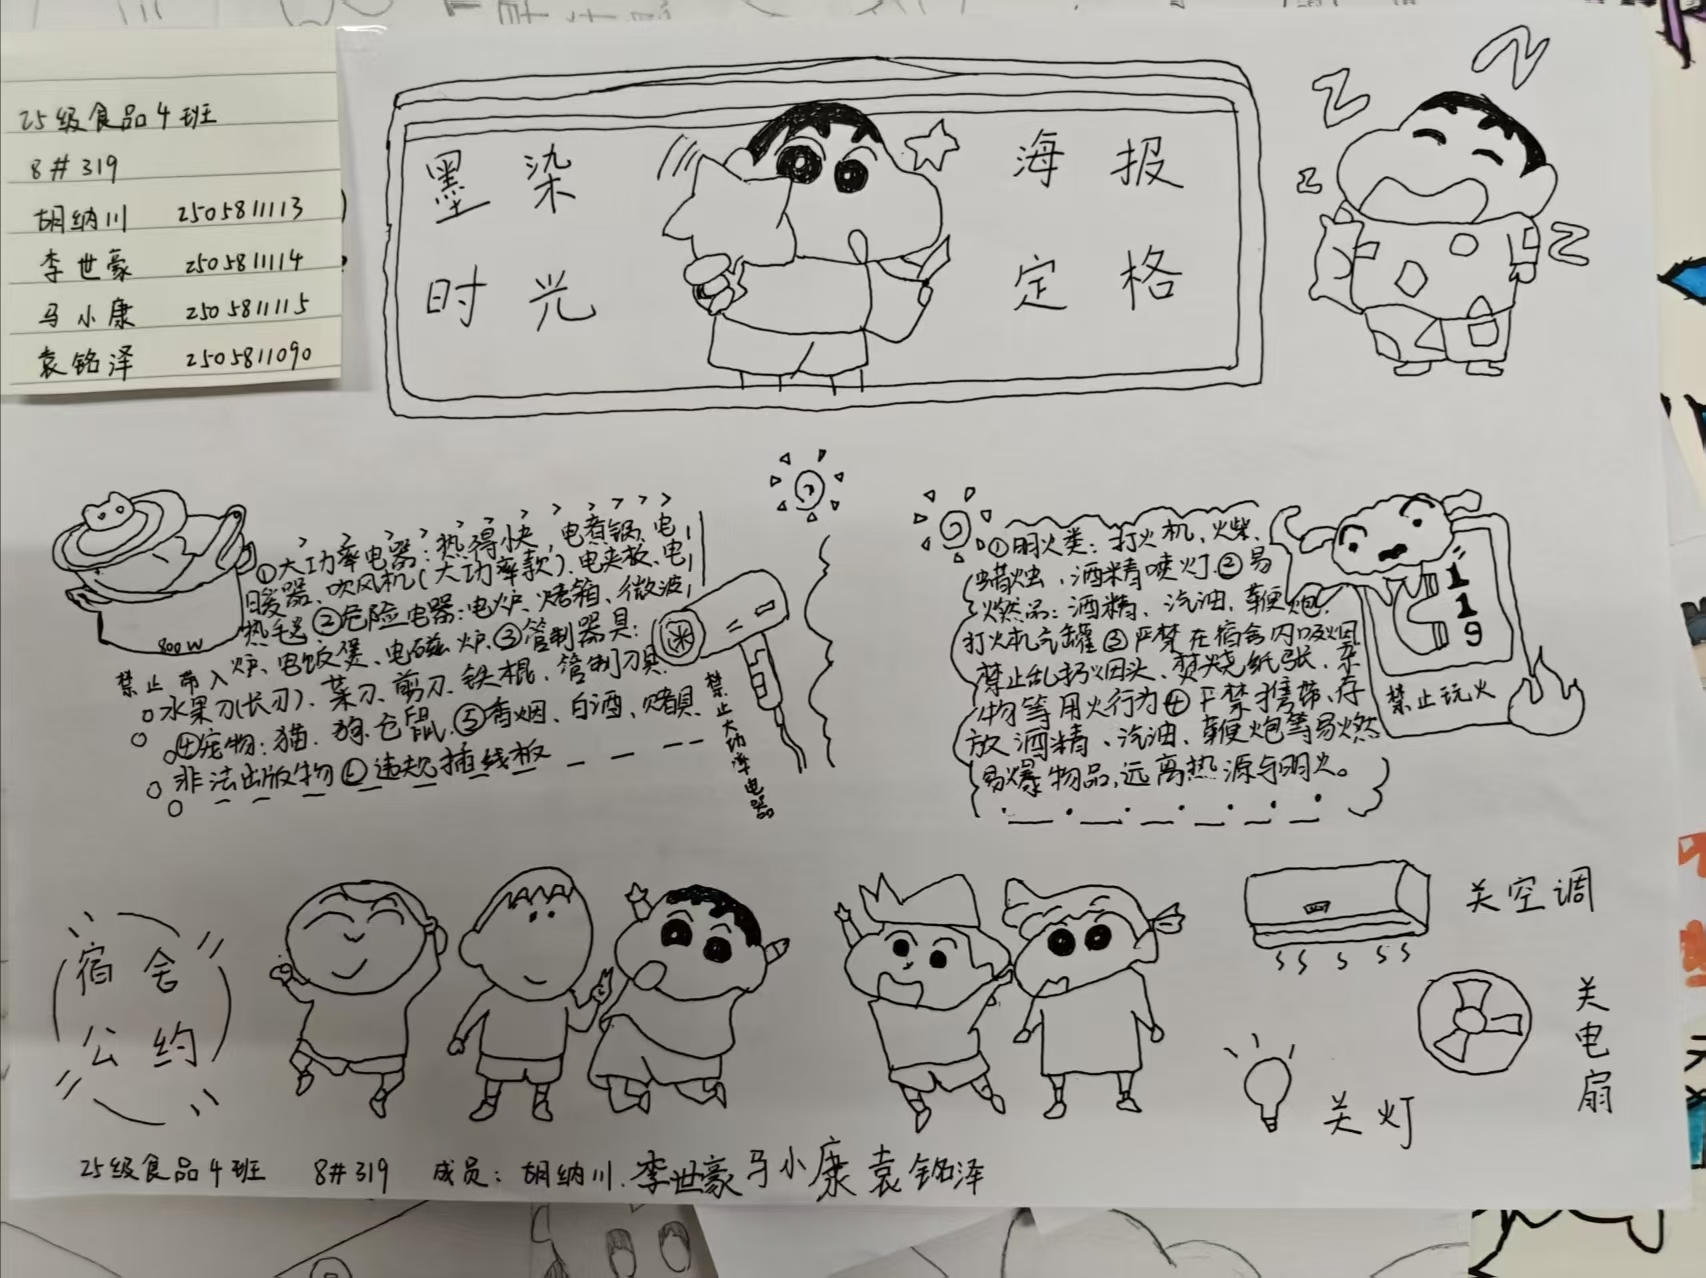 25级食品4班
8#319
胡纳川 2505811113
李世豪 2505811114
马小康 2505811115
袁铭泽 2505811090
墨染
时光
海报
定格
Z
Z
Z
Z
①大功率电器:热得快、电煮锅、电
暖器、吹风机(大功率款)、电夹板、电
热毯②危险电器:电炉、烤箱、微波
炉、电饭煲、电磁炉③管制器具:
水果刀(长刃)、菜刀、剪刀、铁棍、管制刀具
④宠物:猫、狗、仓鼠⑤香烟、白酒、赌具、
非法出版物⑥违规插线板
800W
禁止带入
禁止大功率电器
①明火类:打火机、火柴、
蜡烛、酒精喷灯②易
燃品:酒精、汽油、鞭炮、
打火机气罐③严禁在宿舍内吸烟
禁止乱扔烟头、焚烧纸张、杂
物等用火行为④严禁携带、存
放酒精、汽油、鞭炮等易燃
易爆物品,远离热源与明火。
119
禁止玩火
宿舍
公约
关空调
关电扇
关灯
25级食品4班 8#319 成员:胡纳川.李世豪马小康袁铭泽